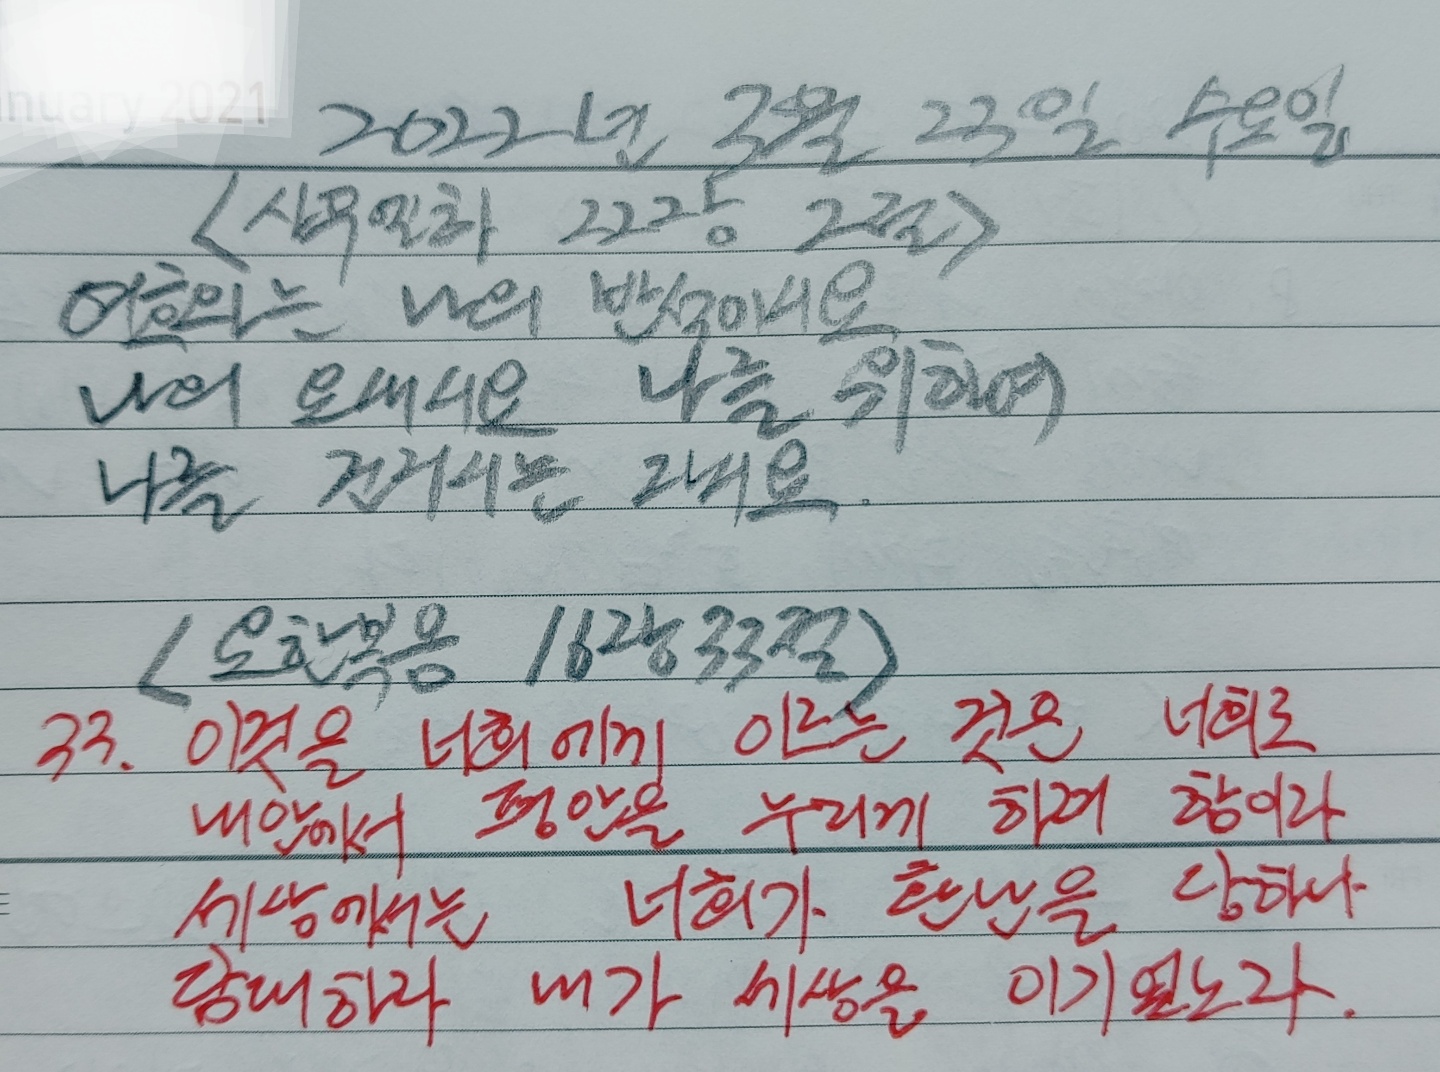 nuary 2021
2022년 3월 23일 수요일
<사무엘하 22장 2절>
여호와는 나의 반석이시요
나의 요새시요 나를 위하여
나를 건지시는 자시요.
<요한복음 16장 33절>
33. 이것을 너희에게 이르는 것은 너희로
내 안에서 평안을 누리게 하려 함이라
세상에서는 너희가 환난을 당하나
담대하라 내가 세상을 이기었노라.